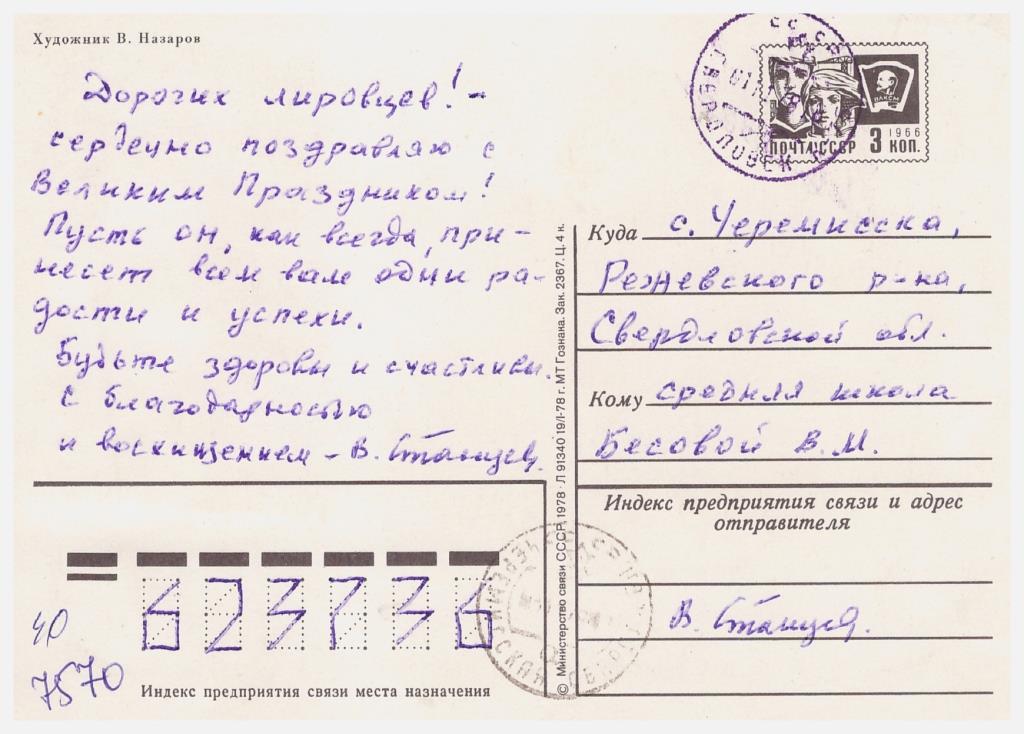 Художник В. Назаров
Дорогих лировцев! -
сердечно поздравляю с
Великим Праздником!
Пусть он, как всегда, при-
несет всем вам одни ра-
дости и успехи.
Будьте здоровы и счастливы.
С благодарностью
и восхищением - В. Станцев.
СССР
СВЕРДЛОВСК
ВЛКСМ
1966
ПОЧТА СССР 3 КОП.
Куда с. Черемисска,
Режевского р-на,
Свердловской обл.
Кому средняя школа
Бесовой В.М.
Индекс предприятия связи и адрес
отправителя
В. Станцев.
© Министерство связи СССР. 1978 · Л 91340 19/I-78 г. МТ Гознака. Зак. 2367. Ц. 4 к.
623736
40
7570
Индекс предприятия связи места назначения